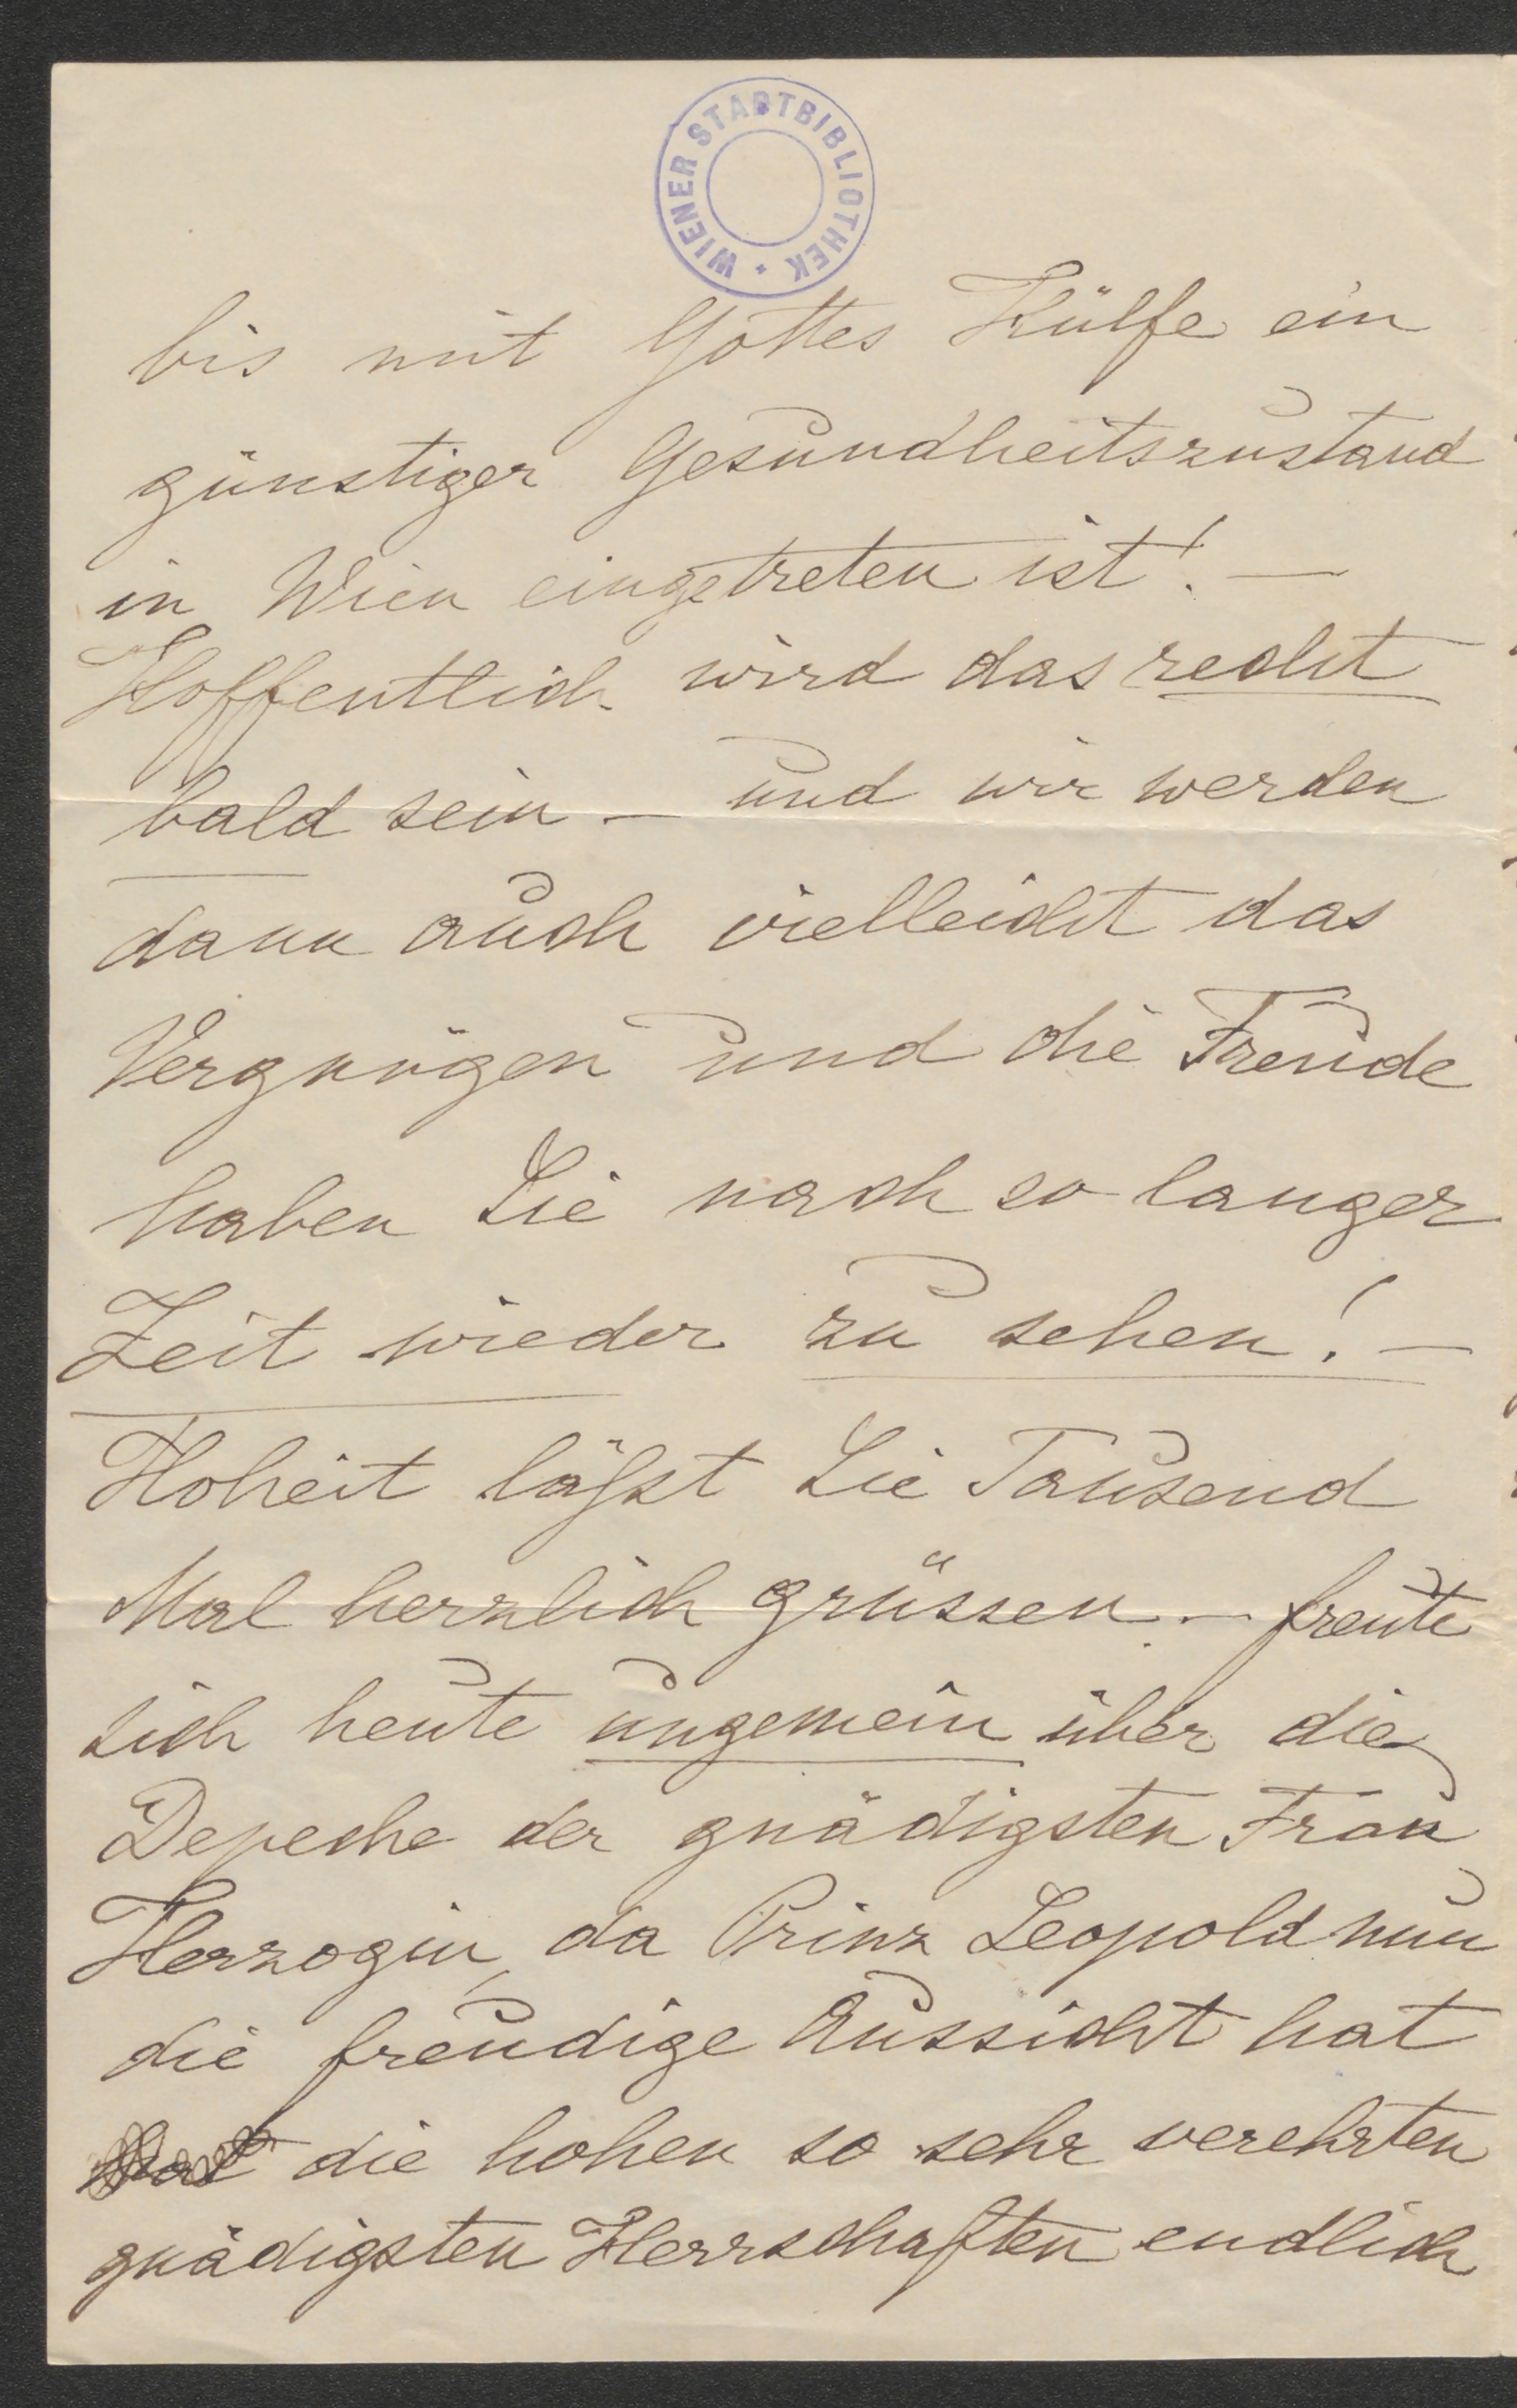 WIENER STADTBIBLIOTHEK *
bis mit Gottes Hülfe ein
günstiger Gesundheitszustand
in Wien eingetreten ist! —
Hoffentlich wird das recht
bald sein — und wir werden
dann auch vielleicht das
Vergnügen und die Freude
haben Sie nach so langer
Zeit wieder zu sehen! —
Hoheit läßt Sie Tausend
Mal herzlich grüssen. — freute
sich heute ungemein über die
Depeche der gnädigsten Frau
Herzogin, da Prinz Leopold nun
die freudige Aussicht hat
die hohen so sehr verehrten
gnädigsten Herrschaften endlich